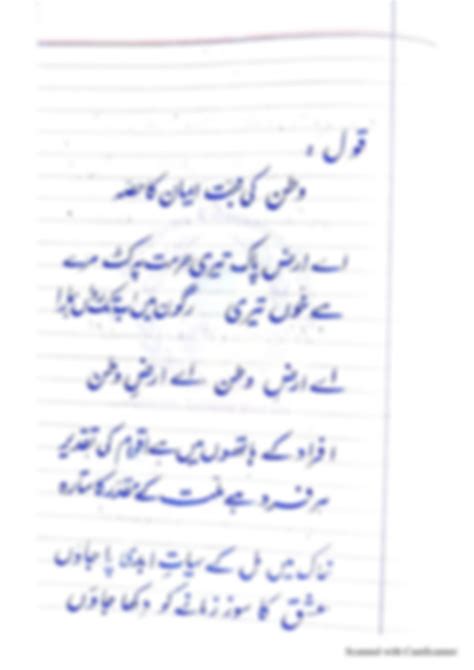 قول :
وطن کی محبت ایمان کا حصہ
اے ارضِ پاک تیری حرمت پہ کٹ مرے
ہے خوں تیری رگوں میں
اے ارضِ وطن اے ارضِ وطن
افراد کے ہاتھوں میں ہے اقوام کی تقدیر
ہر فرد ہے ملت کے مقدر کا ستارہ
خاک میں مل کے حیاتِ ابدی پا جاؤں
عشق کا سوز زمانے کو دکھا جاؤں
Scanned with CamScanner